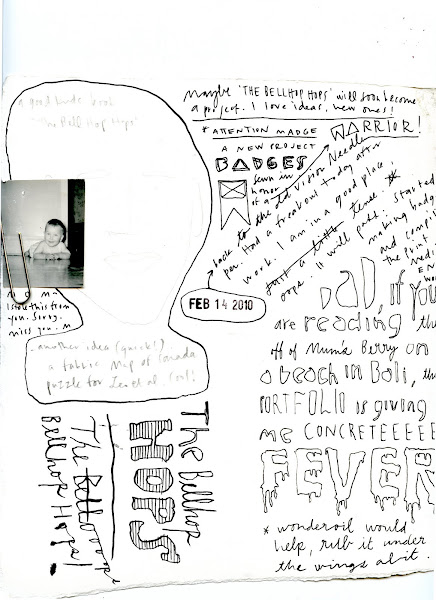 maybe 'THE BELLHOP HOPS' will soon become
a project. I love ideas, new ones!
a good kids' book
"The Bell Hop Hops"
* ATTENTION MADGE
WARRIOR!
A NEW PROJECT
BADGES
sewn in
honor
of a
back to the old Vision Needle
pen. Had a freakout today after
work. I am in a good place.
Just a little tense.
oops. It will pass. Started
making badges
and
the point
FEB 14 2010
MOM
I stole this from
you. Sorry.
miss you. M
another idea (quick!)
a fabric Map of Canada
puzzle for
Dad, if you
are reading this
off of Mum's Berry on
a beach in Bali, the
PORTFOLIO is giving
me CONCRETEEEEE
FEVER
* wonderoil would
help, rub it under
the wings a bit.
The Bellhop
HOPS
The Bellooops
Bellhop Hops!